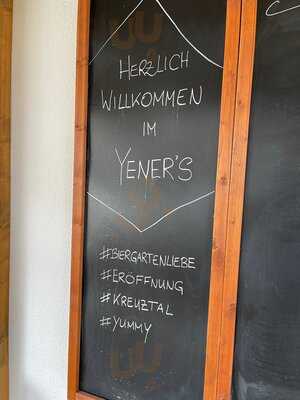 HERZLICH
WILLKOMMEN
IM
YENER'S
#BIERGARTENLIEBE
#ERÖFFNUNG
#KREUZTAL
#YUMMY